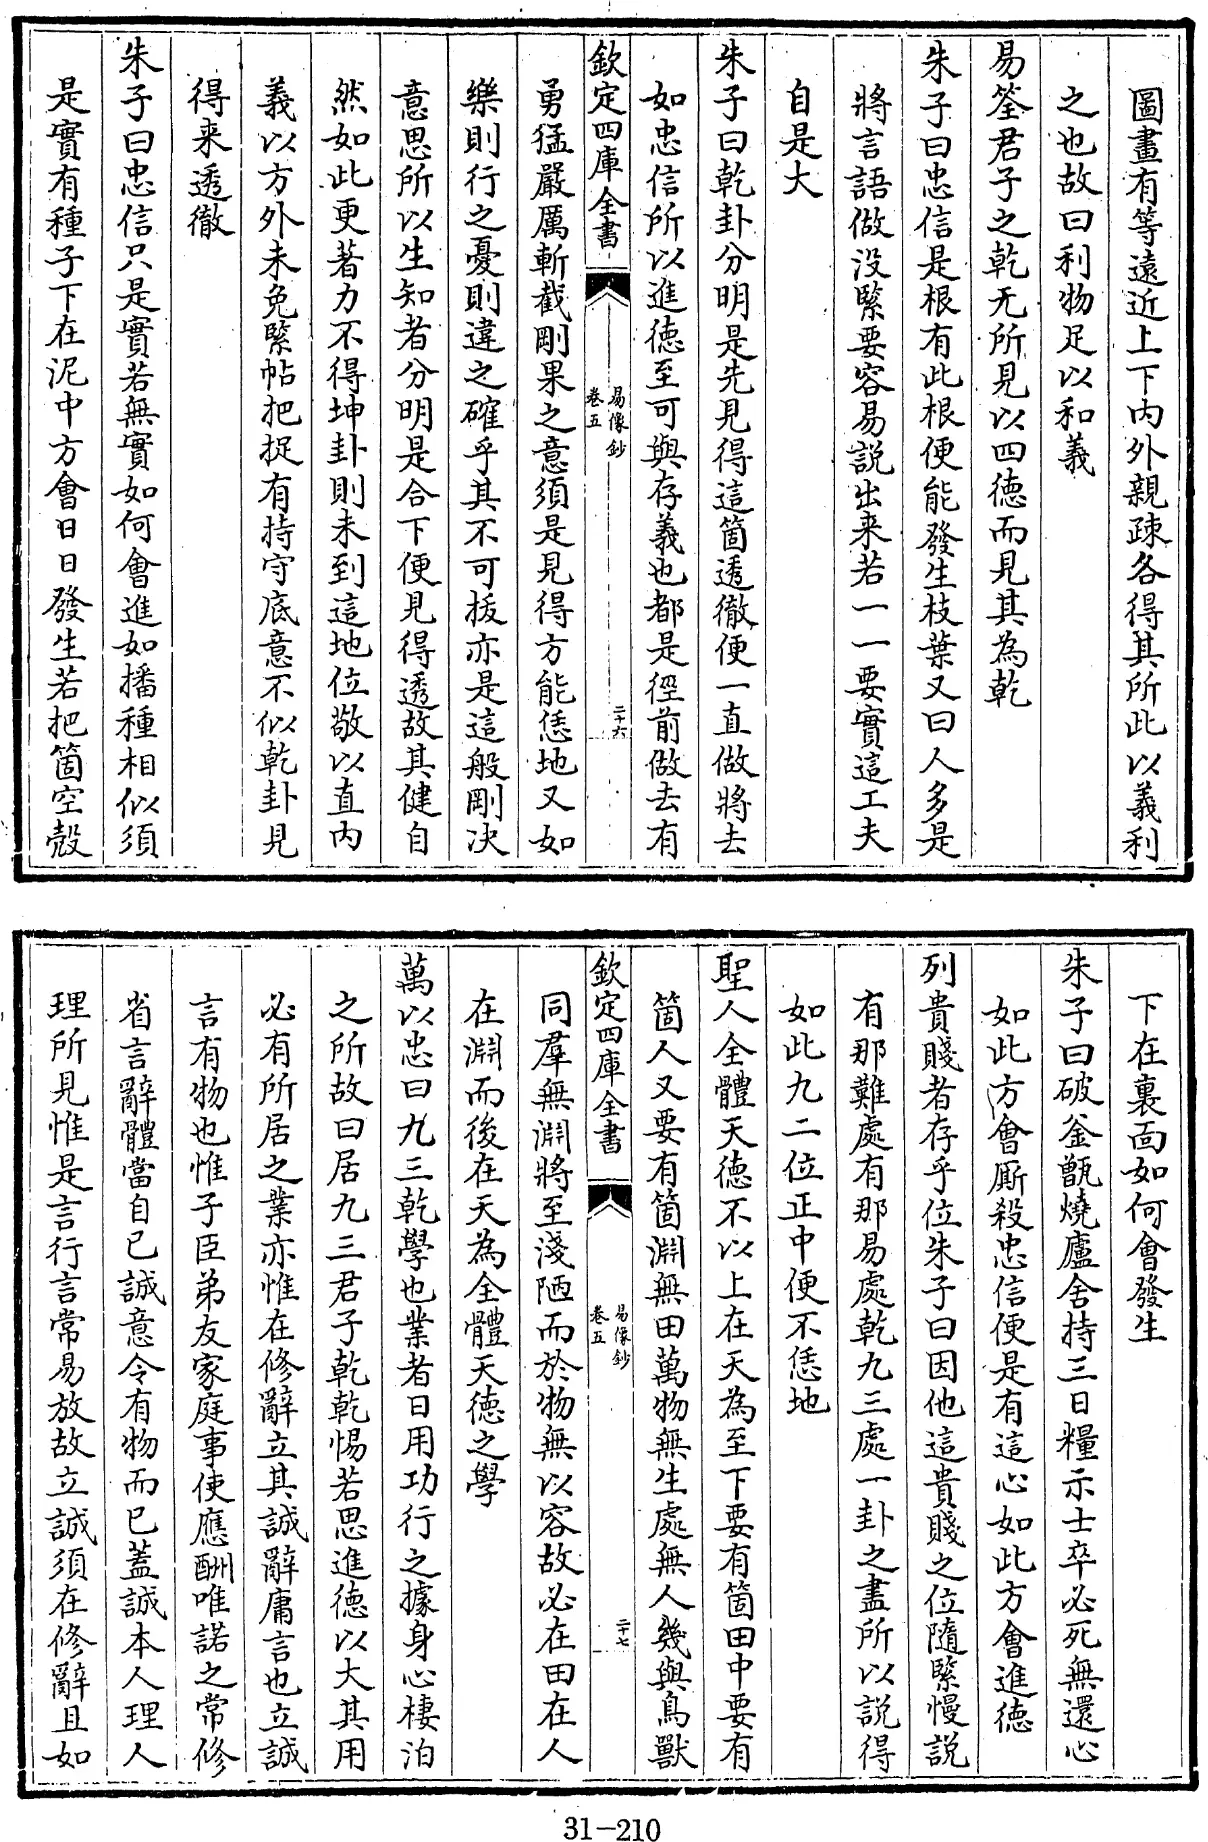 圖畫有等遠近上下内外親疎各得其所此以義利
之也故曰利物足以和義
易筌君子之乾无所見以四德而見其為乾
朱子曰忠信是根有此根便能發生枝葉又曰人多是
將言語做没緊要容易説出来若一一要實這工夫
自是大
朱子曰乾卦分明是先見得這箇透徹便一直做將去
如忠信所以進德至可與存義也都是徑前做去有
欽定四庫全書
易像鈔
卷五
二十六
勇猛嚴厲斬截剛果之意須是見得方能恁地又如
樂則行之憂則違之確乎其不可拔亦是這般剛决
意思所以生知者分明是合下便見得透故其健自
然如此更著力不得坤卦則未到這地位敬以直内
義以方外未免緊帖把捉有持守底意不似乾卦見
得来透徹
朱子曰忠信只是實若無實如何會進如播種相似須
是實有種子下在泥中方會日日發生若把箇空殻
下在裏面如何會發生
朱子曰破釜甑燒廬舍持三日糧示士卒必死無還心
如此方會厮殺忠信便是有這心如此方會進德
列貴賤者存乎位朱子曰因他這貴賤之位隨緊慢説
有那難處有那易處乾九三處一卦之盡所以説得
如此九二位正中便不恁地
聖人全體天德不以上在天為至下要有箇田中要有
箇人又要有箇淵無田萬物無生處無人幾與鳥獸
欽定四庫全書
易像鈔
卷五
二十七
同羣無淵將至淺陋而於物無以容故必在田在人
在淵而後在天為全體天德之學
萬以忠曰九三乾學也業者日用功行之據身心棲泊
之所故曰居九三君子乾乾惕若思進德以大其用
必有所居之業亦惟在修辭立其誠辭庸言也立誠
言有物也惟子臣弟友家庭事使應酬唯諾之常修
省言辭體當自已誠意令有物而已蓋誠本人理人
理所見惟是言行言常易放故立誠須在修辭且如
31-210